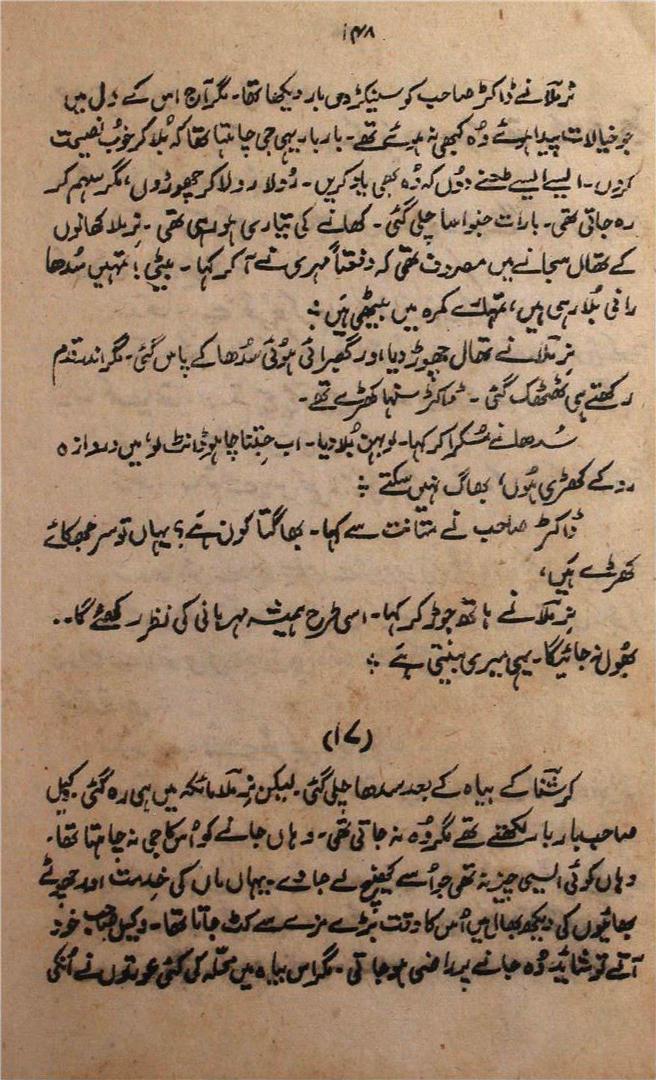 ۱۴۸
نرملا نے ڈاکٹر صاحب کو سینکڑوں بار دیکھا تھا۔ مگر آج اس کے دل میں
جو خیالات پیدا ہوئے وہ کبھی نہ ہوئے تھے۔ بار بار یہی جی چاہتا تھا کہ بُلا کر خوب نصیحت
کروں۔ ایسے ایسے طعنے دوں کہ وہ بھی یاد کریں۔ رُولا رولا کر چھوڑوں، مگر سہم کر
رہ جاتی تھی۔ بارات جنواسا چلی گئی۔ کھانے کی تیاری ہو رہی تھی۔ نرملا کھانوں
کے تھال سجانے میں مصروف تھی کہ دفعتاً مہری نے آ کر کہا۔ بیٹی! تمہیں سُدھا
رانی بُلا رہی ہیں، تمہارے کمرہ میں بیٹھی ہیں ؞
نرملا نے تھال چھوڑ دیا، اور گھبرائی ہوئی سُدھا کے پاس گئی۔ مگر اندر قدم
رکھتے ہی ٹھٹھک گئی۔ ڈاکٹر سنہا کھڑے تھے۔
سُدھا نے مُسکرا کر کہا۔ لو بہن بُلا دیا۔ اب جتنا چاہو ڈانٹ لو، میں دروازہ
روکے کھڑی ہوں، بھاگ نہیں سکتے ؞
ڈاکٹر صاحب نے متانت سے کہا۔ بھاگتا کون ہے؟ یہاں تو سر جھکائے
کھڑے ہیں،
نرملا نے ہاتھ جوڑ کر کہا۔ اسی طرح ہمیشہ مہربانی کی نظر رکھئے گا۔۔
بھول نہ جائیگا۔ یہی میری بنیتی ہے ؞
(۱۷)
کرشنا کے بیاہ کے بعد سدھا چلی گئی۔ لیکن نرملا مائکہ میں ہی رہ گئی۔ وکیل
صاحب بار بار لکھتے تھے مگر وُہ نہ جاتی تھی۔ وہاں جانے کو اُس کا جی نہ چاہتا تھا۔
وہاں کوئی ایسی چیز نہ تھی جو اُسے کھینچ لے جاوے۔ یہاں ماں کی خدمت اور چھوٹے
بھائیوں کی دیکھ بھال میں اُس کا وقت بڑے مزے سے کٹ جاتا تھا۔ وکیل صاحب خود
آتے تو شاید وُہ جانے پر راضی ہو جاتی۔ مگر اس بیاہ میں محلّہ کی کئی عورتوں نے اُنکی